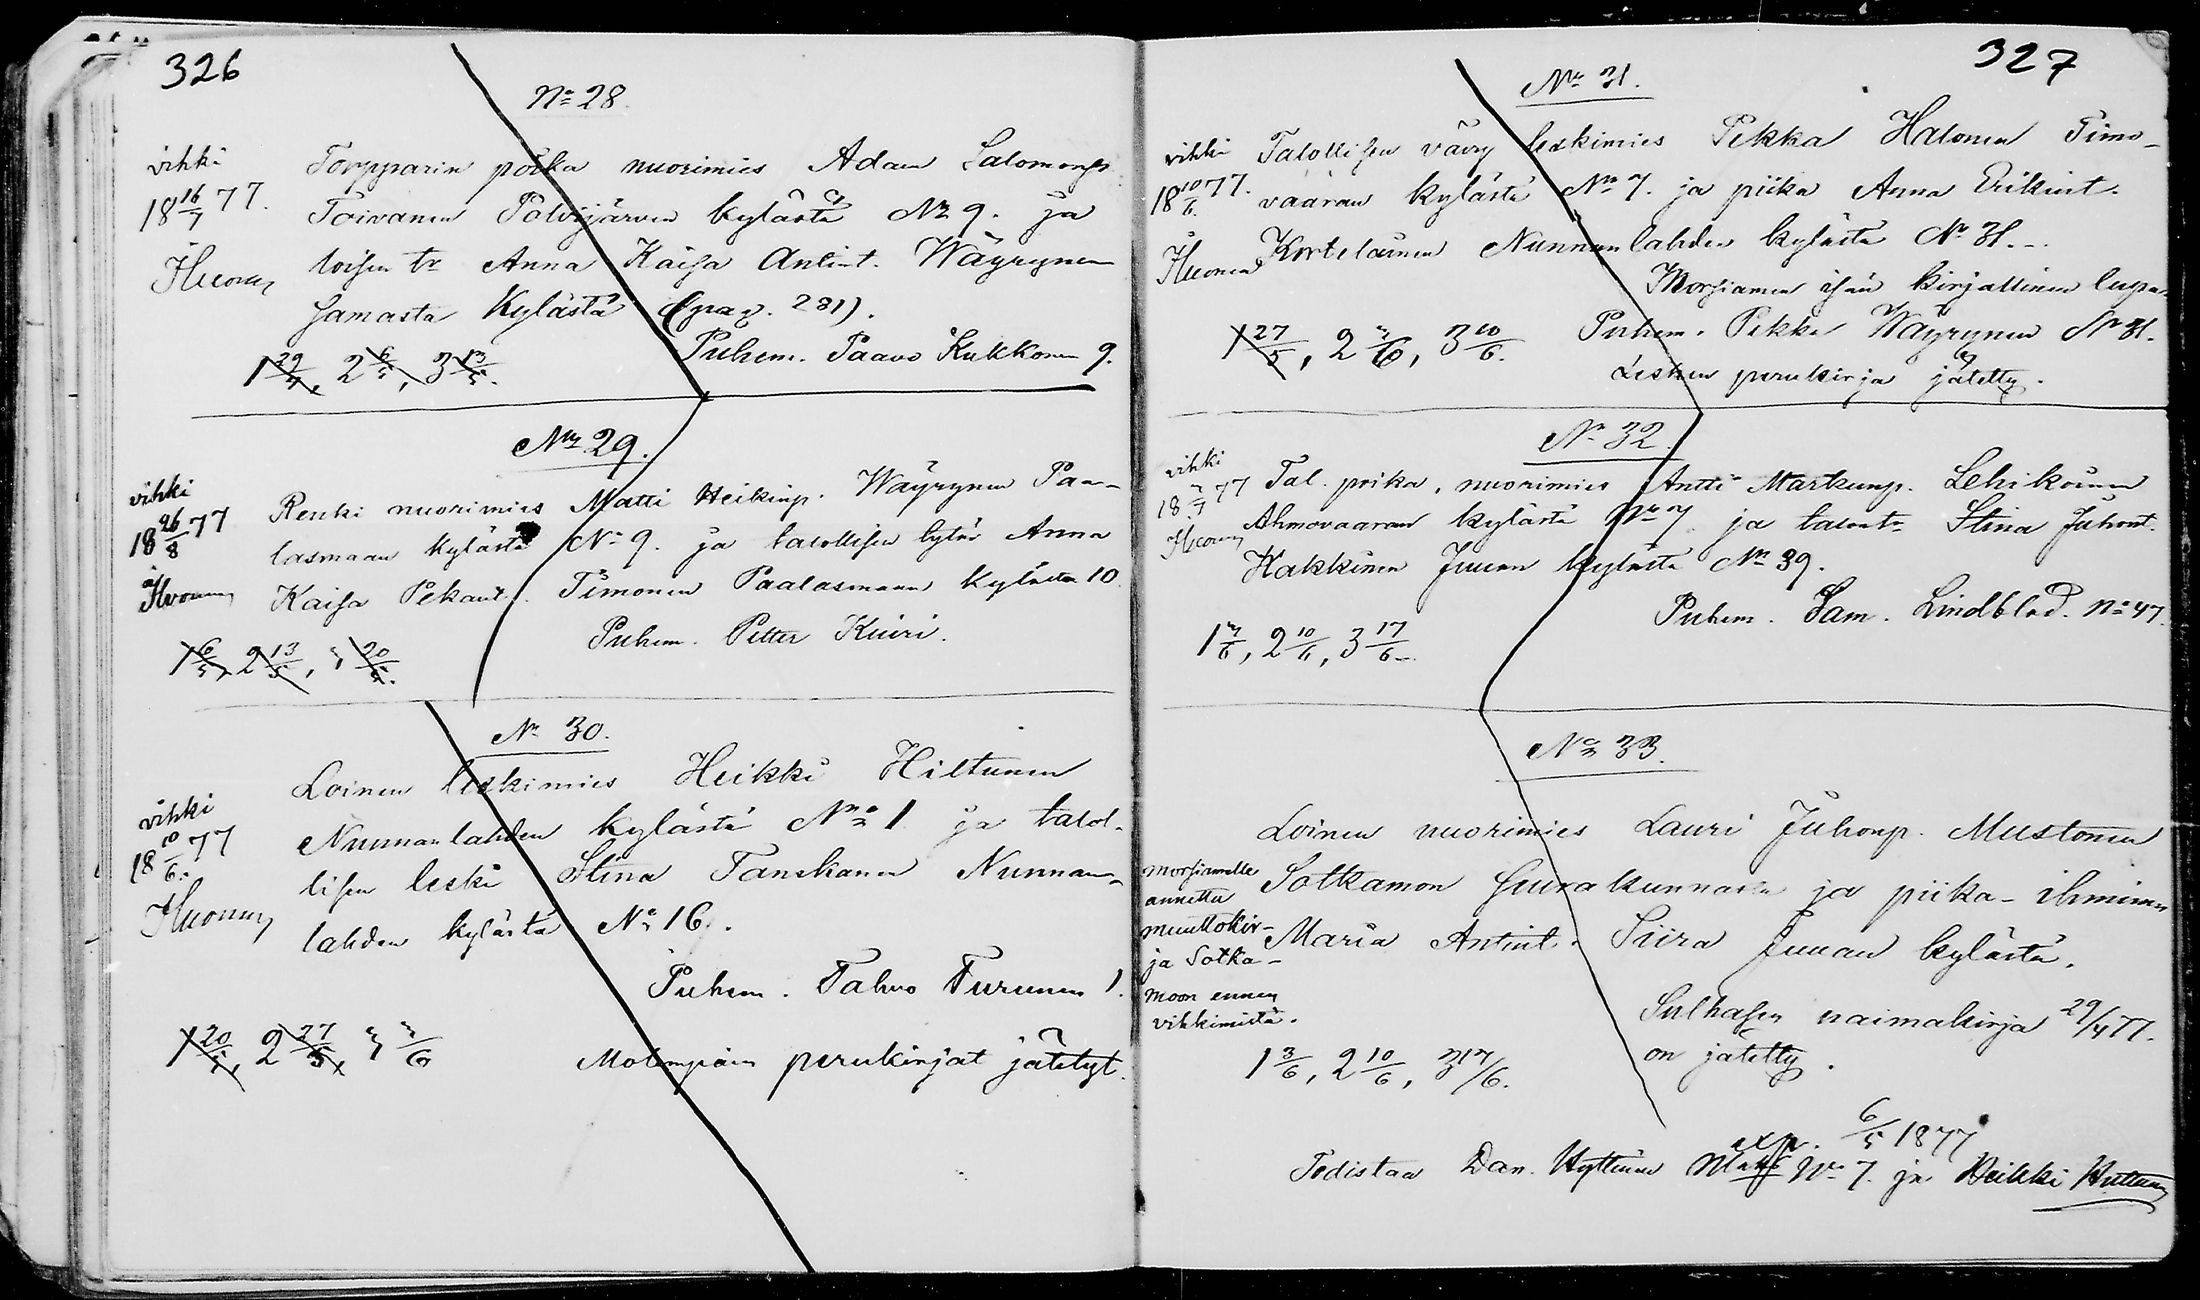 326
No 28.
vihki
18 16/7 77.
Torpparin poika nuorimies Adam Salomonp.
Toivanen Polvijärven kylästä No 9. ja
loisen tr Anna Kaisa Antint. Wäyrynen
samasta kylästä (pag. 281).
Puhem. Paavo Kukkonen 9.
1 29/4, 2 6/5, 3 13/5.
No 29.
vihki
18 26/8 77
Renki nuorimies Matti Heikinp. Wäyrynen Paa-
lasmaan kylästä No 9. ja talollisen tytär Anna
Kaisa Pekant. Timonen Paalasmaan kylästä 10.
Puhem. Petter Kiiri.
1 6/5, 2 13/5, 3 20/5.
No 30.
vihki
18 10/6 77
Loinen leskimies Heikki Hiltunen
Nunnanlahden kylästä No 1 ja talol-
lisen leski Stina Tanskanen Nunnan-
lahden kylästä No 16.
Puhem. Tahvo Turunen 1.
1 20/5, 2 27/5, 3 3/6
Molempain perukirjat jätetyt.
327
No 31.
vihki
18 10/6 77.
Talollisen vävy leskimies Pekka Halonen Timo-
vaaran kylästä No 7. ja piika Anna Erikint.
Kortelainen Nunnanlahden kylästä No 31.
Morsiamen isän kirjallinen lupa.
Puhem. Pekka Wäyrynen No 31.
Lesken perukirja jätetty.
1 27/5, 2 3/6, 3 10/6.
No 32.
vihki
Tal. poika, nuorimies Antti Markunp. Lehikoinen
Ahmovaaran kylästä No 7 ja talon tr Stina Juhont.
Kakkinen Juuan kylästä No 39.
Puhem. Sam. Lindblad. No 47.
1 3/6, 2 10/6, 3 17/6
No 33.
Loinen nuorimies Lauri Juhonp. Mustonen
Sotkamon seurakunnasta ja piika-ihminen
Maria Antint. Siira Juuan kylästä.
morsiamelle
annettu
muuttokir-
ja Sotka-
moon ennen
vihkimistä.
Sulhasen naimakirja 29/4 77.
on jätetty.
1 3/6, 2 10/6, 3 17/6.
exp. 6/5 1877
Todistaa Dan. Hyttinen No 7. ja Heikki